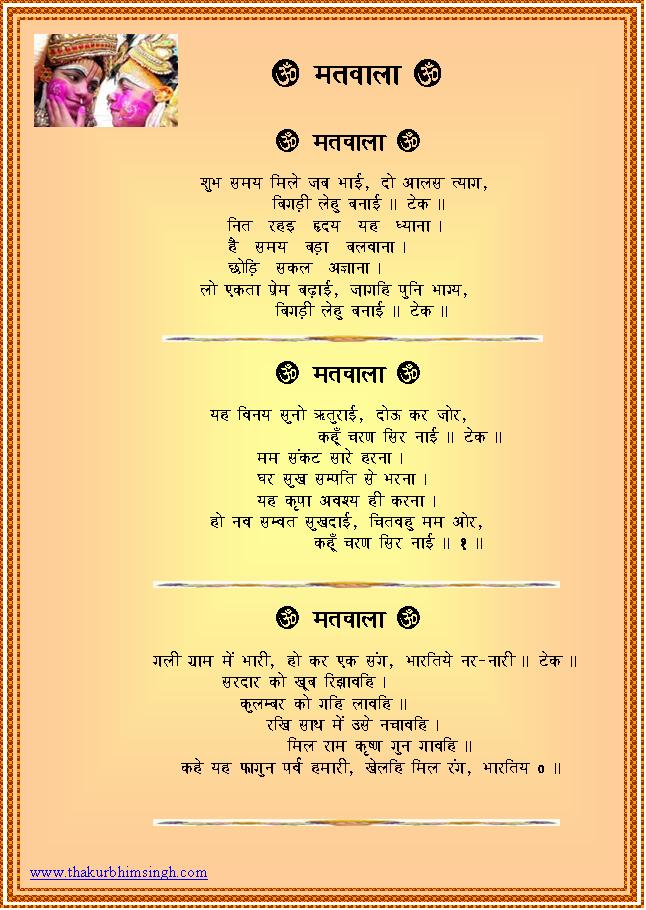 ॐ मतवाला ॐ
ॐ मतवाला ॐ
शुभ समय मिले जब भाई, दो आलस त्याग,
बिगड़ी लेहु बनाई ॥ टेक ॥
नित रहइ हृदय यह ध्याना ।
है समय बड़ा बलवाना ।
छोड़ि सकल अज्ञाना ।
लो एकता प्रेम बढ़ाई, जागहि पुनि भाग्य,
बिगड़ी लेहु बनाई ॥ टेक ॥
ॐ मतवाला ॐ
यह विनय सुनो ऋतुराई, दोऊ कर जोर,
कहूँ चरण सिर नाई ॥ टेक ॥
मम संकट सारे हरना ।
घर सुख सम्पति से भरना ।
यह कृपा अवश्य ही करना ।
हो नव सम्वत सुखदाई, चितवहु मम ओर,
कहूँ चरण सिर नाई ॥ १ ॥
ॐ मतवाला ॐ
गली ग्राम में भारी, हो कर एक संग, भारतिये नर-नारी ॥ टेक ॥
सरदार को खूब रिझावहि ।
कुलम्बर को गहि लावहि ॥
रखि साथ में उसे नचावहि ।
मिल राम कृष्ण गुन गावहि ॥
कहे यह फागुन पर्व हमारी, खेलहि मिल रंग, भारतिय ० ॥
www.thakurbhimsingh.com